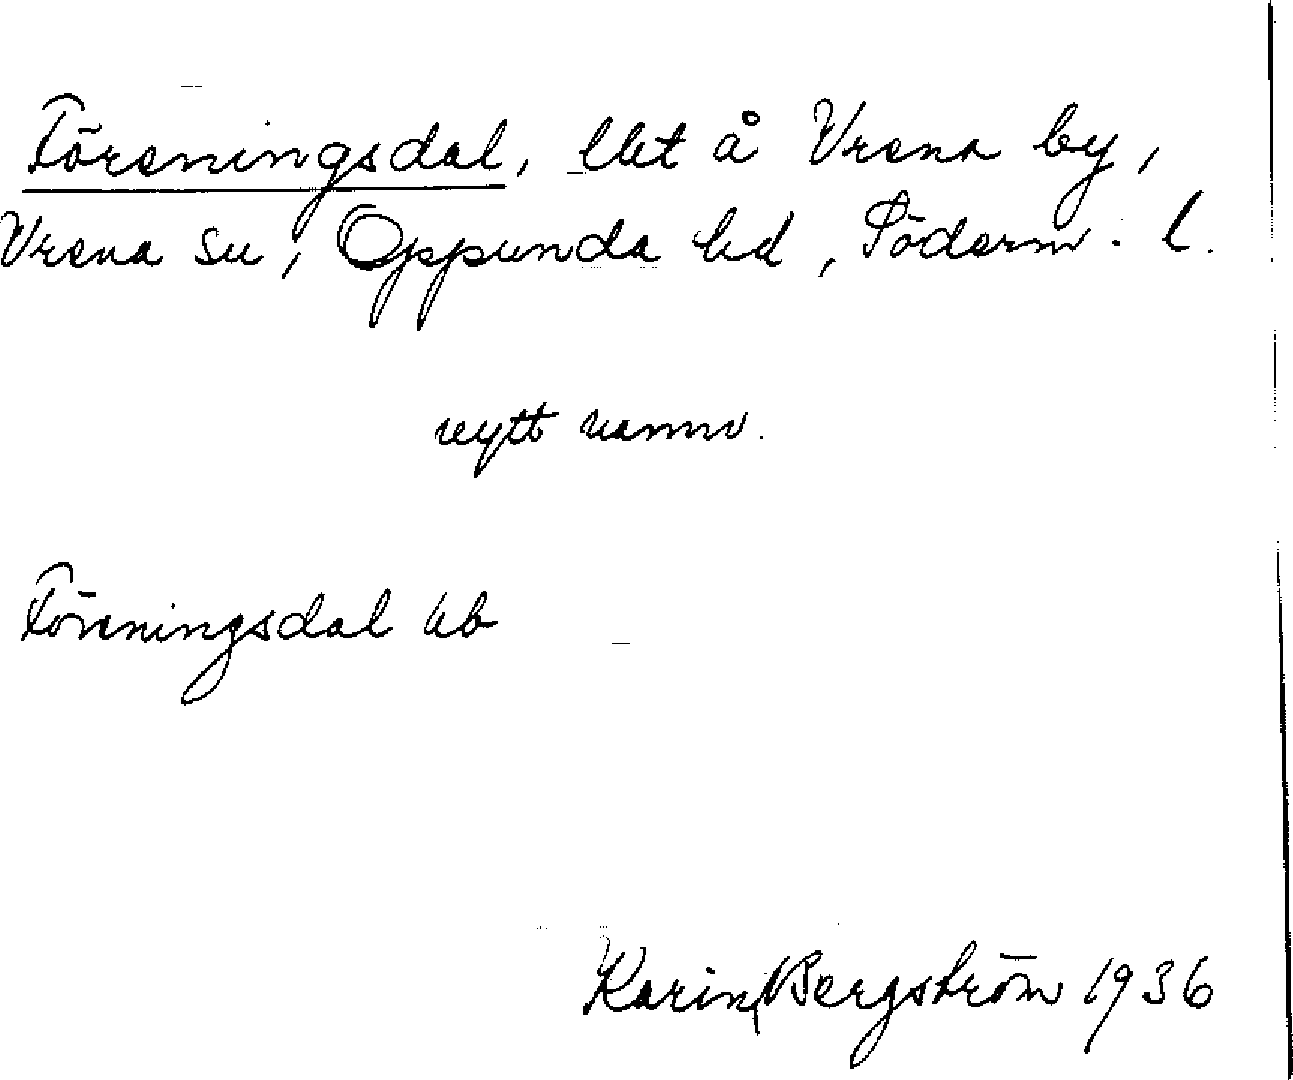 Föreningsdal, lht å Vrena by,
Vrena sn, Oppunda hd, Söderm. l.
nytt namn.
Föreningsdal
Karin Bergström 1936